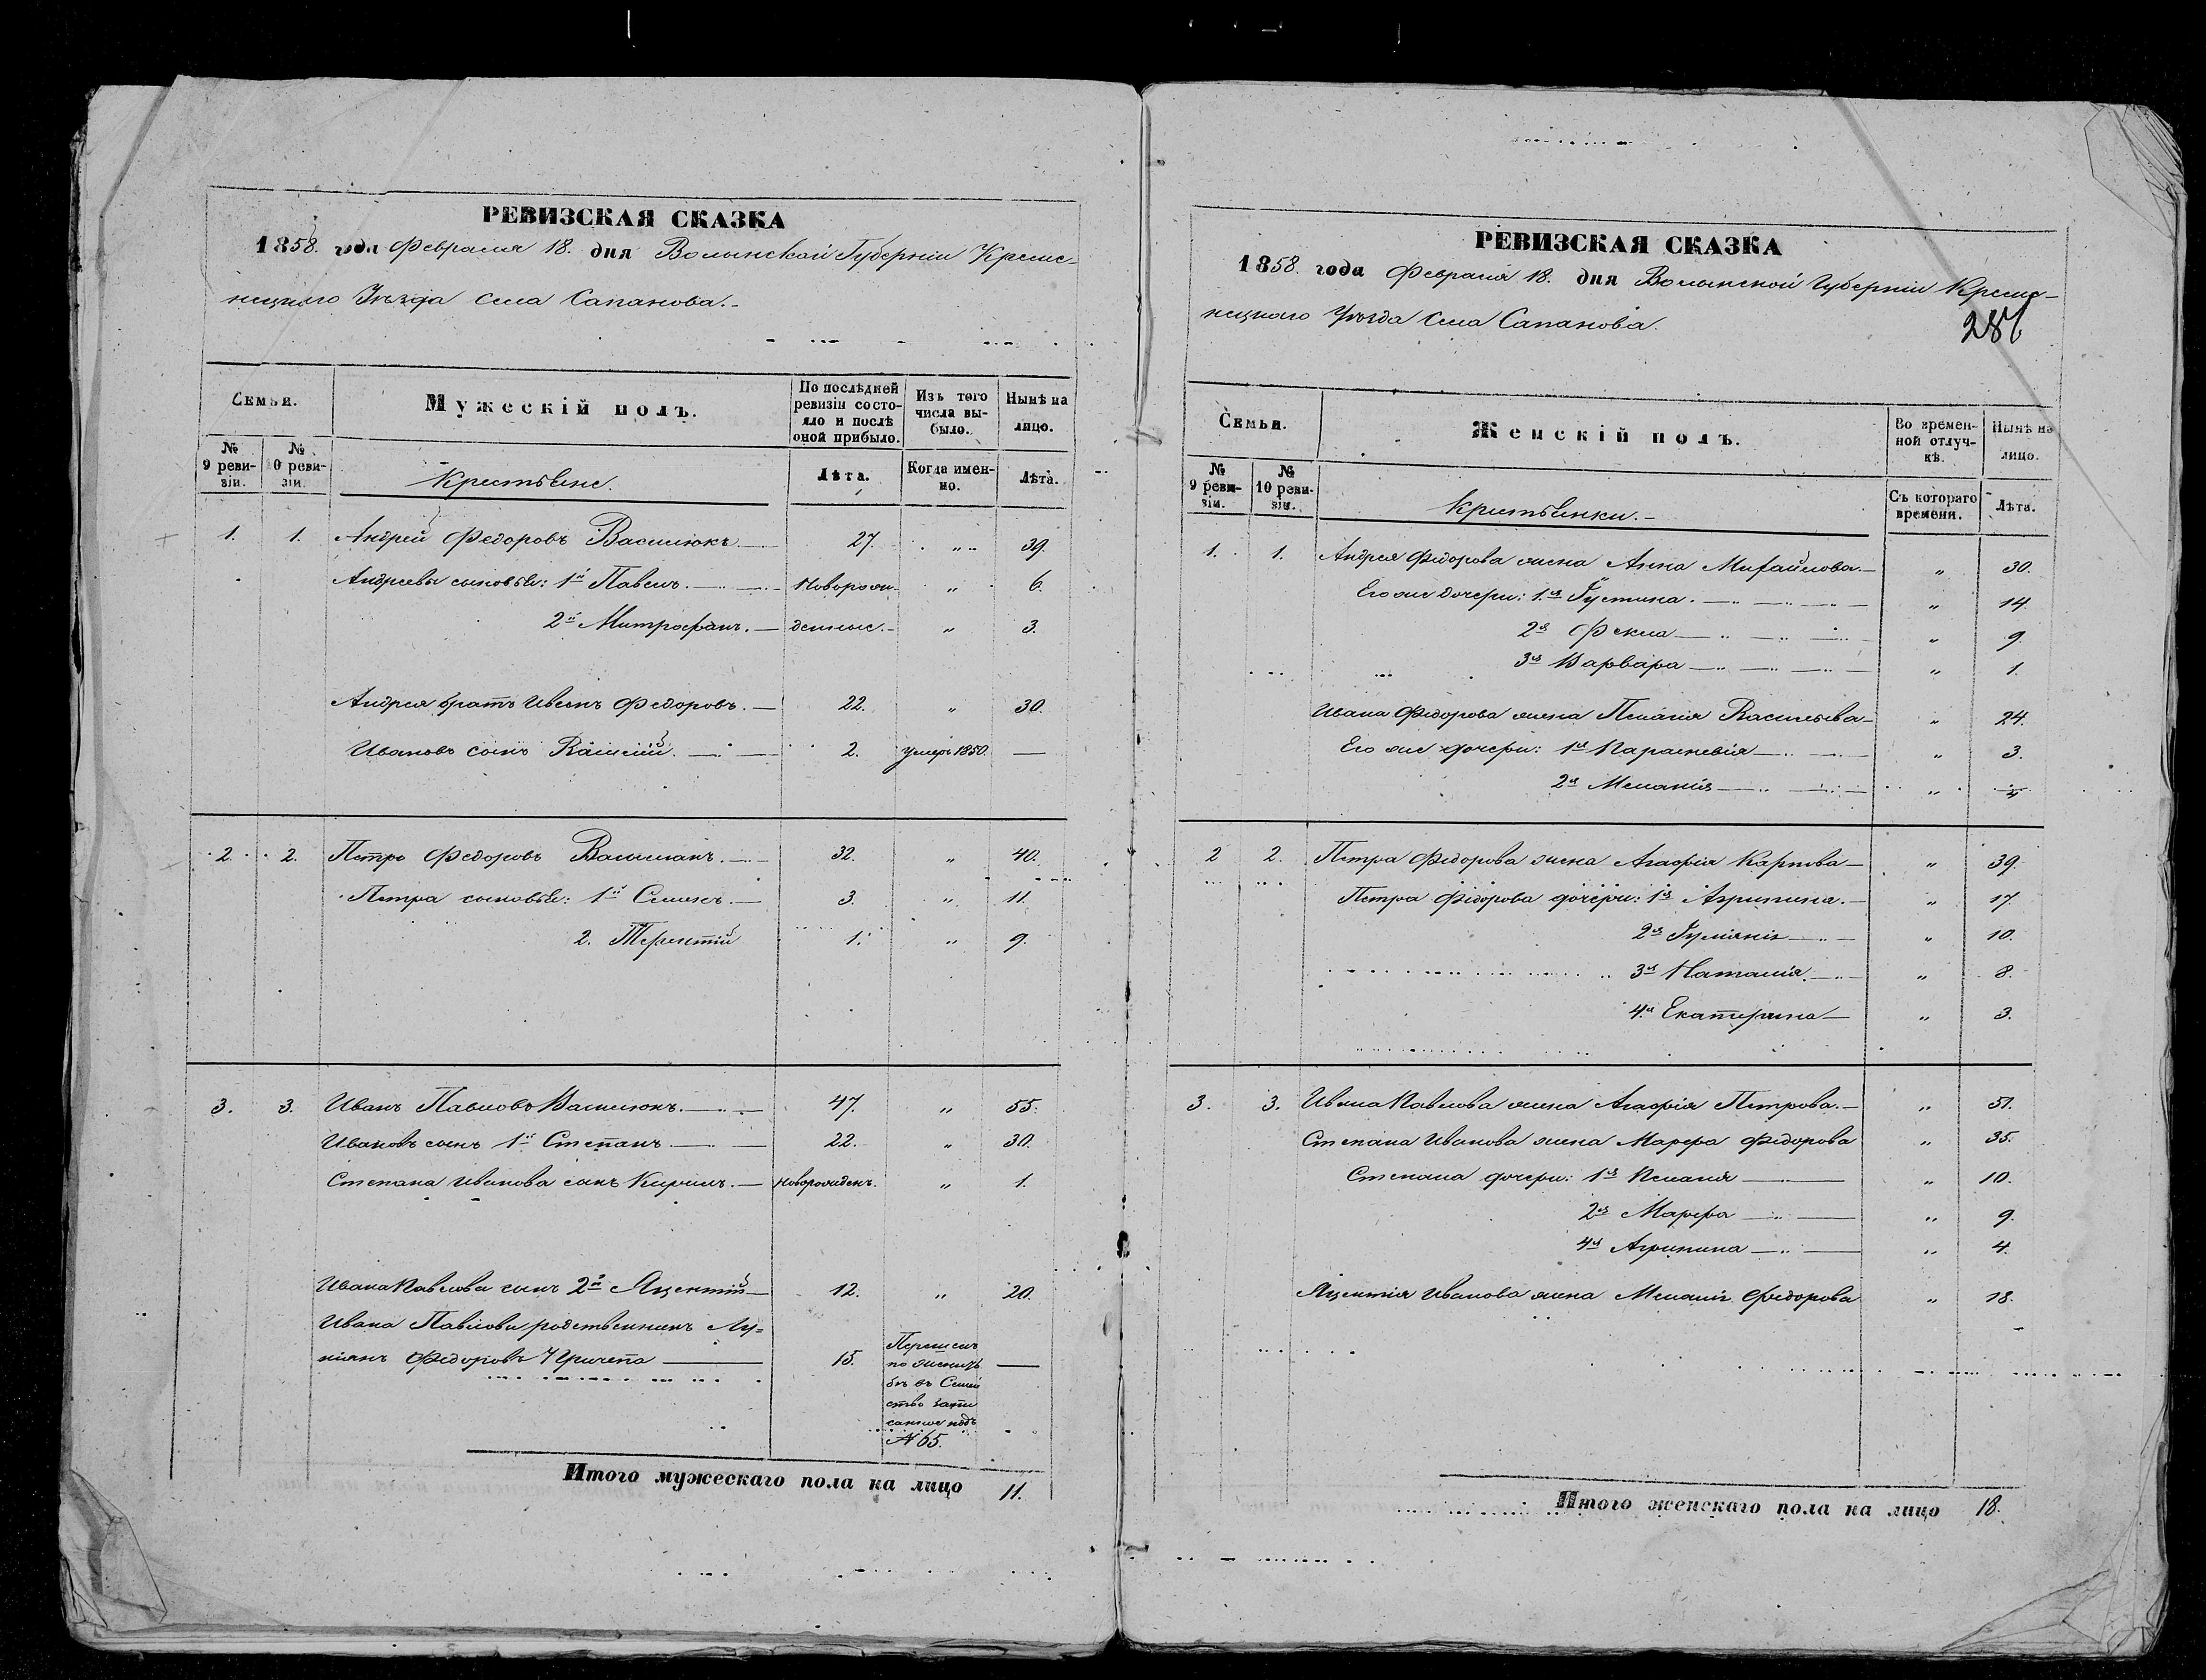 РЕВИЗСКАЯ СКАЗКА
1858. года Февраля 18. дня Волынской Губерніи Креме-
нецкого Уѣзда Села Сапанова.-
Семьи.
Мужескій полъ.
По послѣдней ревизіи состо-
яло и послѣ оной прибыло.
Изъ того числа вы-
было.
Нынѣ на лицо.
№ 9 реви-
зіи.
№ 10 реви-
зіи.
Крестьяне.
Лѣта.
Когда имен-
но.
Лѣта.
1. 1. Андрей Федоровъ Василюкъ.— 27. „ „ 39.
Андреевы сыновья: 1й Павелъ.— Новорож- „ 6.
2й Митрофанъ.— денные.- „ 3.
Андрея братъ Иванъ Федоровъ.— 22. „ 30.
Ивановъ сынъ Василій.— 2. умеръ 1850. —
2. 2. Петръ Федоровъ 32. „ 40.
Петра сыновья: 1й Семенъ.— 3. „ 11.
2. Терентій 1. „ 9.
3. 3. Иванъ Павловъ Василюкъ.— 47. „ 55.
Ивановъ сынъ 1й Степанъ— 22. „ 30.
Степана Иванова сынъ Кирилъ.— новорожденъ. „ 1.
Ивана Павлова сынъ 2й Яцентій— 12. „ 20.
Ивана Павлова родственникъ Лу=
кіянъ Федоровъ — 15. —
Семей
ство запи
санное подъ
№ 65.
Итого мужескаго пола на лицо 11.
РЕВИЗСКАЯ СКАЗКА
1858. года Февраля 18. дня Волынской Губерніи Креме-
нецкаго Уѣзда Села Сапанова.
286
Семьи.
Женскій полъ.
Во времен-
ной отлуч-
кѣ.
Нынѣ на лицо.
№ 9 реви-
зіи.
№ 10 реви-
зіи.
Крестьянки.-
Съ котораго времени.
Лѣта.
1. 1. Андрея Федорова жена Анна Михайлова.— „ 30.
Его же дочери: 1.я Густина.— „ 14.
2я Фекла— „ 9.
3я Варвара— „ 1.
Ивана Федорова жена Пелагія Васильева— „ 24.
Его же дочери: 1я Параскевія— „ 3.
2я Меланія— „
2 2. Петра Федорова жена Агафія Карпова— „ 39.
Петра Федорова дочери: 1я Агрипина.— „ 17.
2я Гулiянія— „ 10.
3я Наталія.— „ 8.
4я Екатерина— „ 3.
3. 3. Ивана Павлова жена Агафія Петрова.— „ 51.
Степана Иванова жена Марфа Федорова „ 35.
Степана дочери: 1я Пелагія— „ 10.
2я Марфа— „ 9.
4я Агрипина— „ 4.
Яцентія Иванова жена Меланія Федорова „ 18.
Итого женскаго пола на лицо 18.